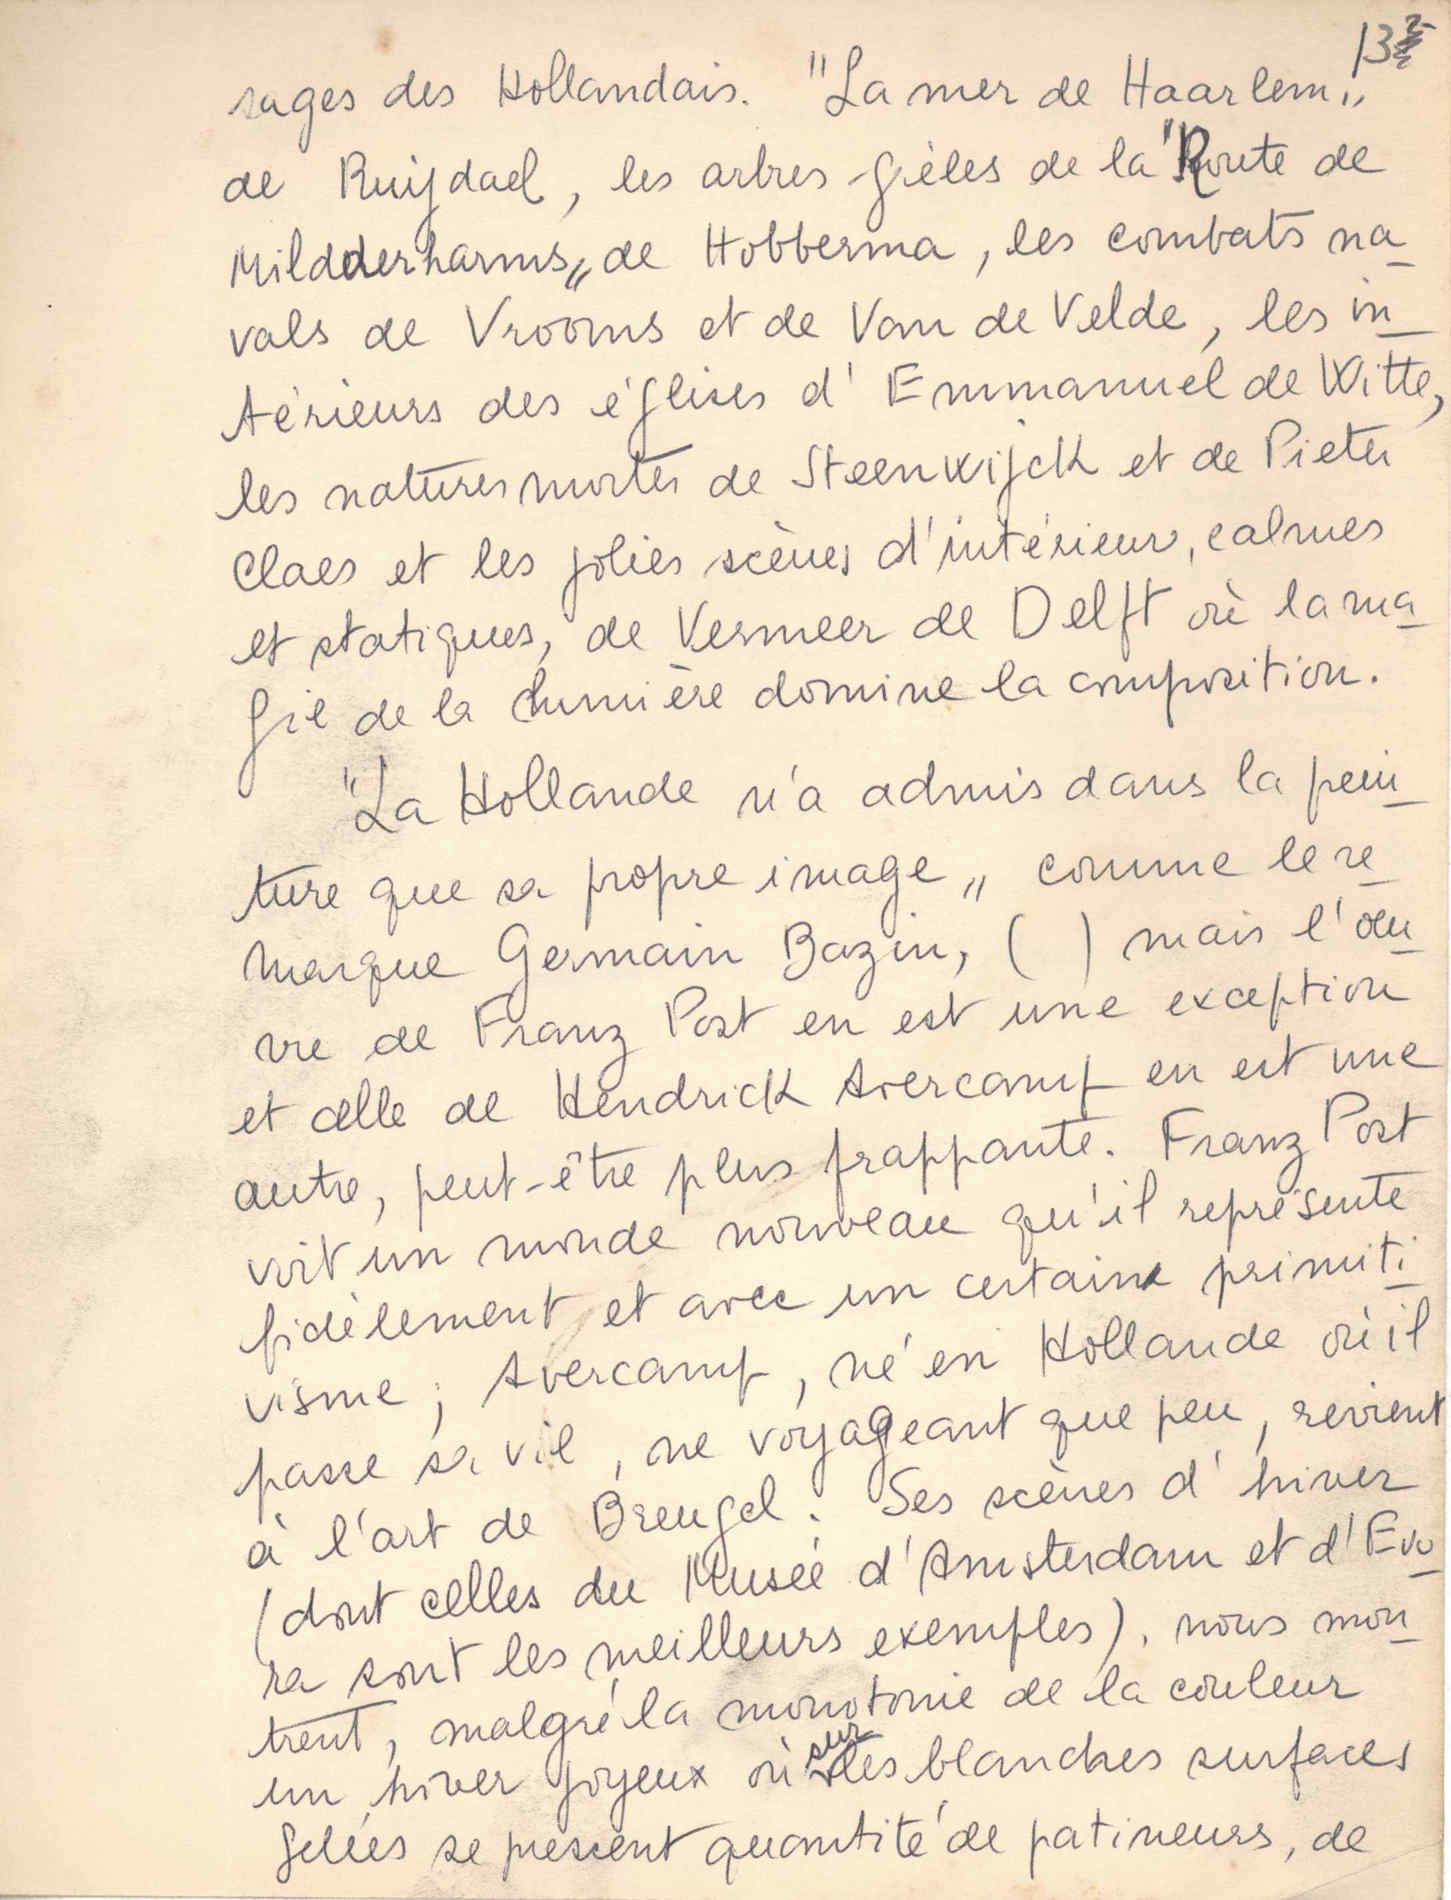 132
sages des Hollandais. "La mer de Haarlem„
de Ruijdael, les arbres gièles de la "Route de
Mildderharms„ de Hobberma, les combats na_
vals de Vrooms et de Van de Velde, les in_
térieurs des églises d'Emmanuel de Witte,
les natures mortes de Steenwijck et de Pieter
Claes et les jolies scènes d'intérieur, calmes
et statiques, de Vermeer de Delft où la ma_
gie de la lumière domine la composition.
"La Hollande n'a admis dans la pein_
ture que sa propre image„ comme le re_
marque Germain Bazin, ( ) mais l'oeu_
vre de Franz Post en est une exception
et celle de Hendrick Avercamp en est une
autre, peut-être plus frappante. Franz Post
voit un monde nouveau qu'il représente
fidèlement et avec un certain primiti_
visme; Avercamp, né en Hollande où il
passe sa vie, ne voyageant que peu, revient
à l'art de Breugel. Ses scènes d'hiver
(dont celles du Musée d'Amsterdam et d'Evo_
ra sont les meilleurs exemples), nous mon_
trent, malgré la monotonie de la couleur
un hiver joyeux où sur les blanches surfaces
gelées se pressent quantité de patineurs, de